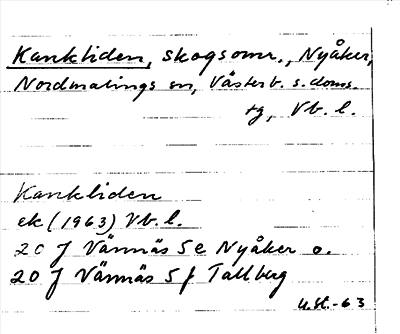 Kankliden, skogsomr., Nyåker,
Nordmalings sn, Västerb. s. doms.
tg, Vb. l.
Kankliden
ek (1963) Vb. l.
20 J Vännäs 5 e Nyåker o.
20 J Vännäs 5 f Tallberg
U.St.-63